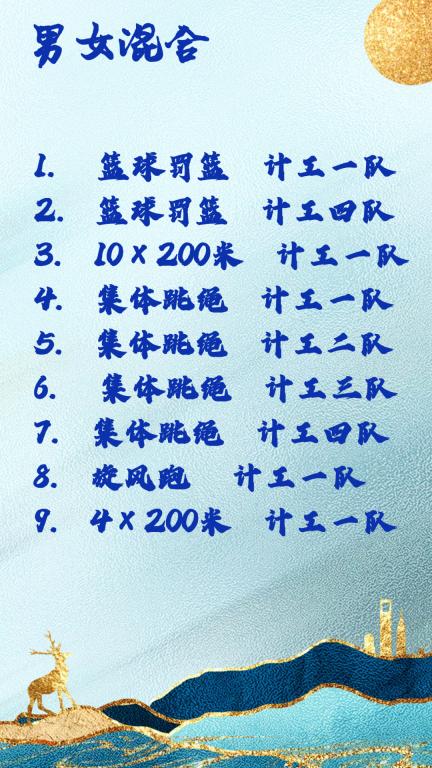 男女混合
1. 篮球罚篮 计工一队
2. 篮球罚篮 计工四队
3. 10×200米 计工一队
4. 集体跳绳 计工一队
5. 集体跳绳 计工二队
6. 集体跳绳 计工三队
7. 集体跳绳 计工四队
8. 旋风跑 计工一队
9. 4×200米 计工一队